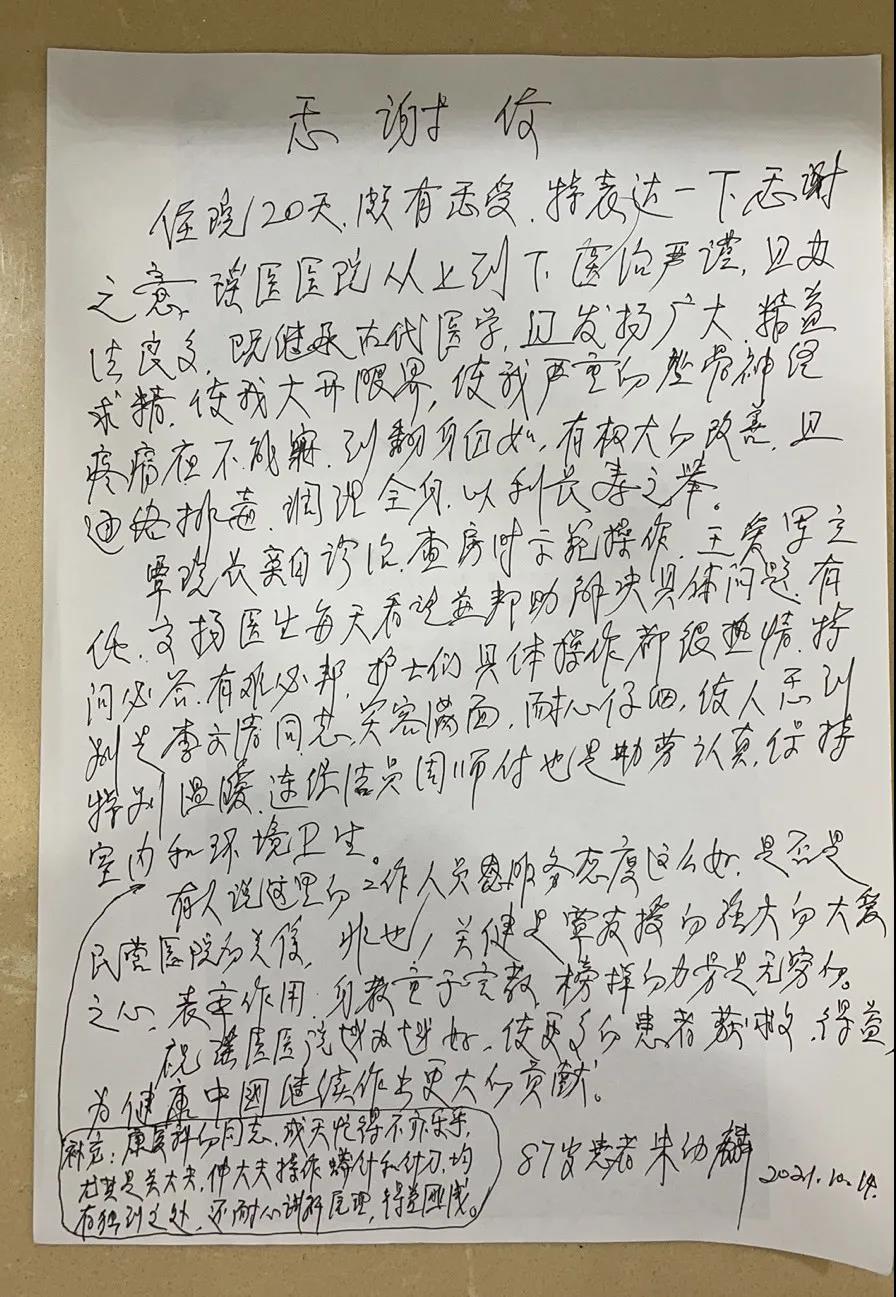 感谢信
住院120天,颇有感受,特表达一下感谢
之意,瑶医医院从上到下,医治严谨,且办
法良多,既继承古代医学,且发扬广大,精益
求精,使我大开眼界,使我严重的坐骨神经
疼痛夜不能寐,到翻身自如,有极大的改善,且
通络排毒,调理全身,以利长寿之举。
覃院长亲自诊治,查房时示范操作,王爱军主
任、文扬医生每天看望并帮助解决具体问题,有
问必答,有难必帮,护士们具体操作都很热情,特
别是李文清同志,笑容满面,耐心仔细,使人感到
特别温暖,连保洁员周师付也是勤劳认真,保持
室内和环境卫生。
有人说这里的工作人员服务态度这么好,是否是
民营医院的关系,非也,关健是覃教授的强大的大爱
之心,表率作用,身教重于言教,榜样的力量是无穷的。
祝瑶医医院越办越好,使更多的患者获救,得益,
为健康中国继续作出更大的贡献。
补充:康复科的同志,成天忙得不亦乐乎,
尤其是关大夫,伸大夫操作蟒针和针刀,均
有独到之处,还耐心讲解原理,得益匪浅。
87岁患者朱幼麟
2021.10.14.